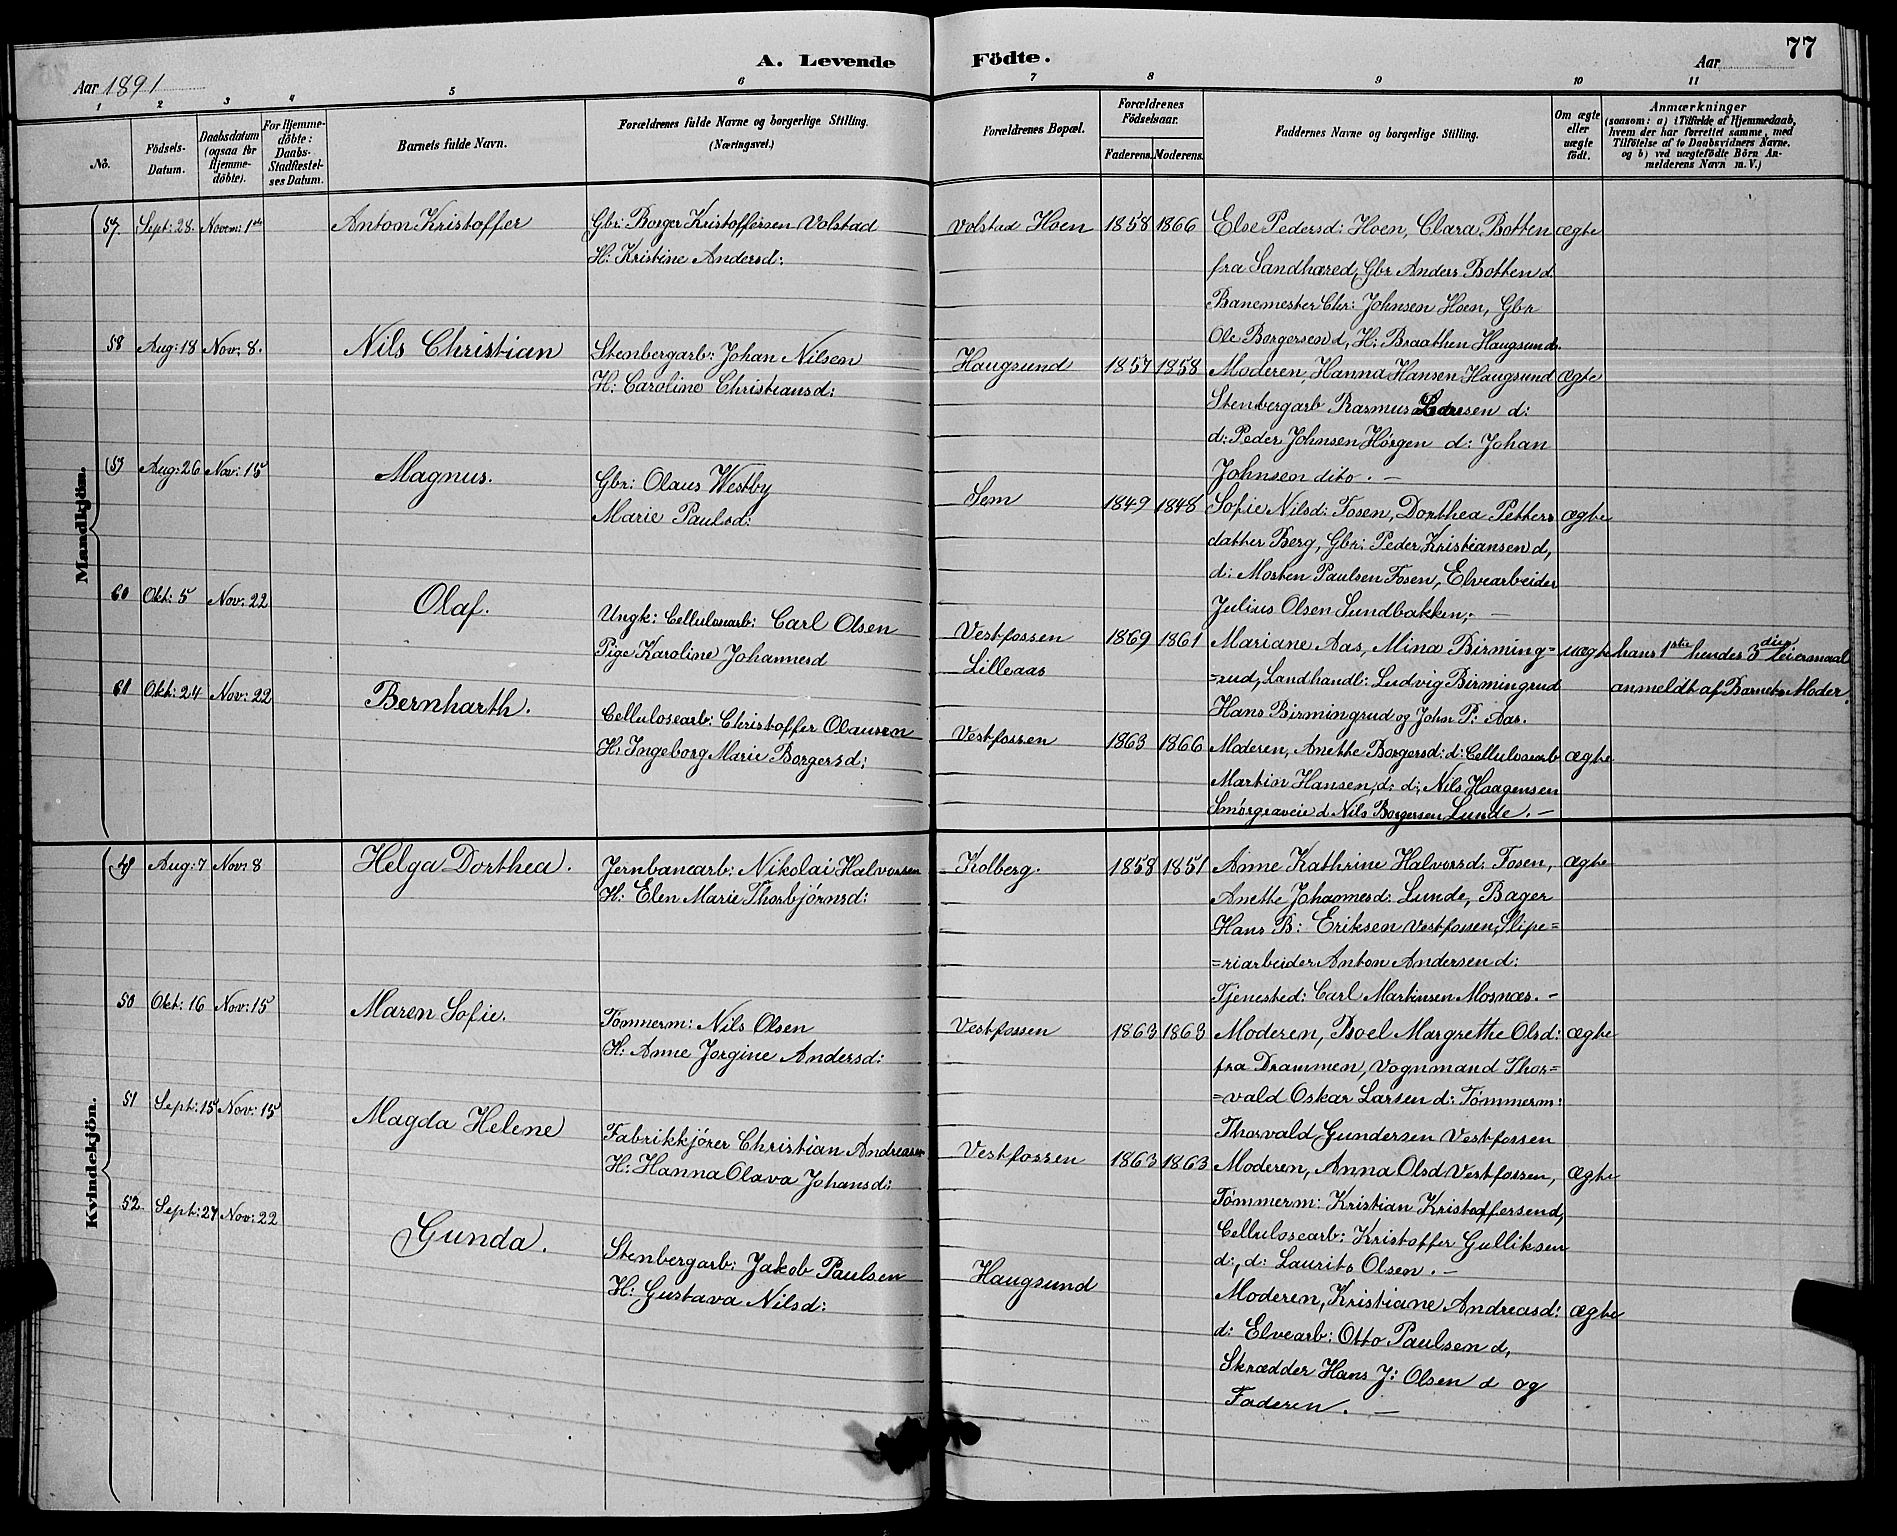 77
A. Levende Födte.
Aar 1891
Aar
1 2 3 4 5 6 7 8 9 10 11
No.
Födsels-
Datum.
Daabsdatum
(ogsaa for
Hjemme-
döbte).
For Hjemme-
döbte:
Daabs-
Stadfæstel-
ses Datum.
Barnets fulde Navn.
Forældrenes fulde Navne og borgerlige Stilling.
(Næringsvei.)
Forældrenes Bopæl.
Forældrenes
Födselsaar.
Faderens. Moderens.
Faddernes Navne og borgerlige Stilling.
Om ægte
eller
uægte
födt.
Anmærkninger
(saasom: a) i Tilfælde af Hjemmedaab,
hvem der har forrettet samme, med
Tilföielse af to Daabsvidners Navne.
og b) ved uægtefödte Börn An-
melderens Navn m.V.)
Mandkjön.
57. Sept: 28. Novem: 1ste Anton Kristoffer Gbr: Borger Kristoffersen Volstad Volstad Hoen 1858 1866 Else Pedersd: Hoen, Clara Botten ægte
H: Kristine Andersd: fra Sandhæred, Gbr Anders Botten d
Banemester Chr: Johnsen Hoen, Gbr
Ole Borgersen d, H: Braathen Haugsund.
58 Aug: 18 Nov: 8. Nils Christian Stenbergarb: Johan Nilsen Haugsund 1857 1858 Moderen, Hanna Hansen Haugsund ægte
H: Caroline Christiansd: Stenbergarb Rasmus Larsen d:
d: Peder Johnsen Hørgen d: Johan
Johnsen dito. —
59 Aug: 26 Nov: 15 Magnus. Gbr: Olaus Westby Sem 1849 1848 Sofie Nilsd: Fosen, Dorthea Petters ægte
Marie Paulsd: datter Berg, Gbr: Peder Kristiansen d,
d: Morten Paulsen Fosen, Elvearbeider
Julius Olsen Sundbakken; —
60 Okt: 5 Nov: 22 Olaf. Ungk: Cellulosearb: Carl Olsen Vestfossen 1869 1861 Mariane Aas, Mina Birming= uægte hans 1ste hendes 3die leiermaal
Pige Karoline Johannesd Lilleaas =rud, Landhandl: Ludvig Birmingrud anmeldt af Barnets Moder.
Hans Birmingrud og John P: Aas.
61 Okt: 24 Nov: 22 Bernharth. Cellulosearb: Christoffer Olausen Vestfossen 1863 1866 Moderen, Anethe Borgersd: d: Cellulosearb ægte
H: Ingeborg Marie Borgersd: Martin Hansen, d: d: Nils Haagensen
Smørgraveie d Nils Borgersen Lunde. —
Kvindekjön.
49 Aug: 7 Nov: 8 Helga Dorthea. Jernbanearb: Nikolai Halvorsen Kolberg. 1858 1851 Anne Kathrine Halvorsd: Fosen, ægte
H: Elen Marie Thorbjørnsd: Anethe Johannesd: Lunde, Bager
Hans B: Eriksen Vestfossen, Slipe=
=riarbeider Anton Andersen d:
Tjenested: Carl Martinsen Mosnæs. —
50 Okt: 16 Nov: 15 Maren Sofie. Tømmerm: Nils Olsen Vestfossen 1863 1863 Moderen, Boel Margrethe Olsd: ægte
H: Anne Jørgine Andersd: fra Drammen, Vognmand Thor=
=vald Oskar Larsen d: Tømmerm:
Thorvald Gundersen Vestfossen
51 Sept: 15 Nov: 15 Magda Helene Fabrikkjører Christian Andreasen Vestfossen 1863 1863 Moderen, Anna Olsd Vestfossen, ægte
H: Hanna Olava Johansd: Tømmerm: Kristian Kristoffersen d,
Cellulosearb: Kristoffer Gulliksen
d:, d: Laurits Olsen. —
52. Sept: 27 Nov: 22 Gunda. Stenbergarb: Jakob Paulsen Haugsund Moderen, Kristiane Andreasd: ægte
H: Gustava Nilsd: d: Elvearb: Otto Paulsen d,
Skrædder Hans J: Olsen d og
Faderen. —